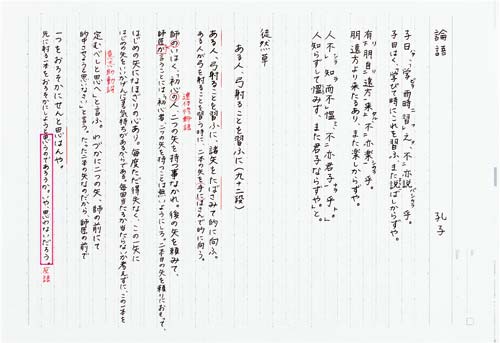 論語　孔子
子曰、「学而時習之、不亦説乎。
子曰く、「学びて時にこれを習ふ、また説ばしからずや。
有朋自遠方来、不亦楽乎。
朋遠方より来たるあり、また楽しからずや。
人不知而不慍、不亦君子乎。」
人知らずして慍みず、また君子ならずや」と。
徒然草
ある人、弓射ることを習ふに（九十二段）
ある人、弓射ることを習ふに、諸矢をたばさみて的に向ふ。
ある人が弓を射ることを習う時に、二本の矢を手にはさんで的に向う。
師のいはく、「初心の人、二つの矢を持つ事なかれ。後の矢を頼みて、
連体修飾語
師匠が言うことには、「初心者、二つの矢を持つことは無いようにしろ。二本目の矢を頼りにおもって、
はじめの矢になほざりの心あり。毎度ただ得失なく、この一矢に
はじめの矢をいいかげんにする気持ちがあるからである。毎回当たるか当たらないか考えずに、この一本を
定むべしと思へ」と言う。わづかに二つの矢、師の前にて
意志助動詞
的中させようと思いなさい」と言う。たった二本の矢なのだから、師匠の前で
一つをおろそかにせんと思はんや。
先に射る一本をおろそかにしようと思うのであろうか。いや思わないだろう。
反語